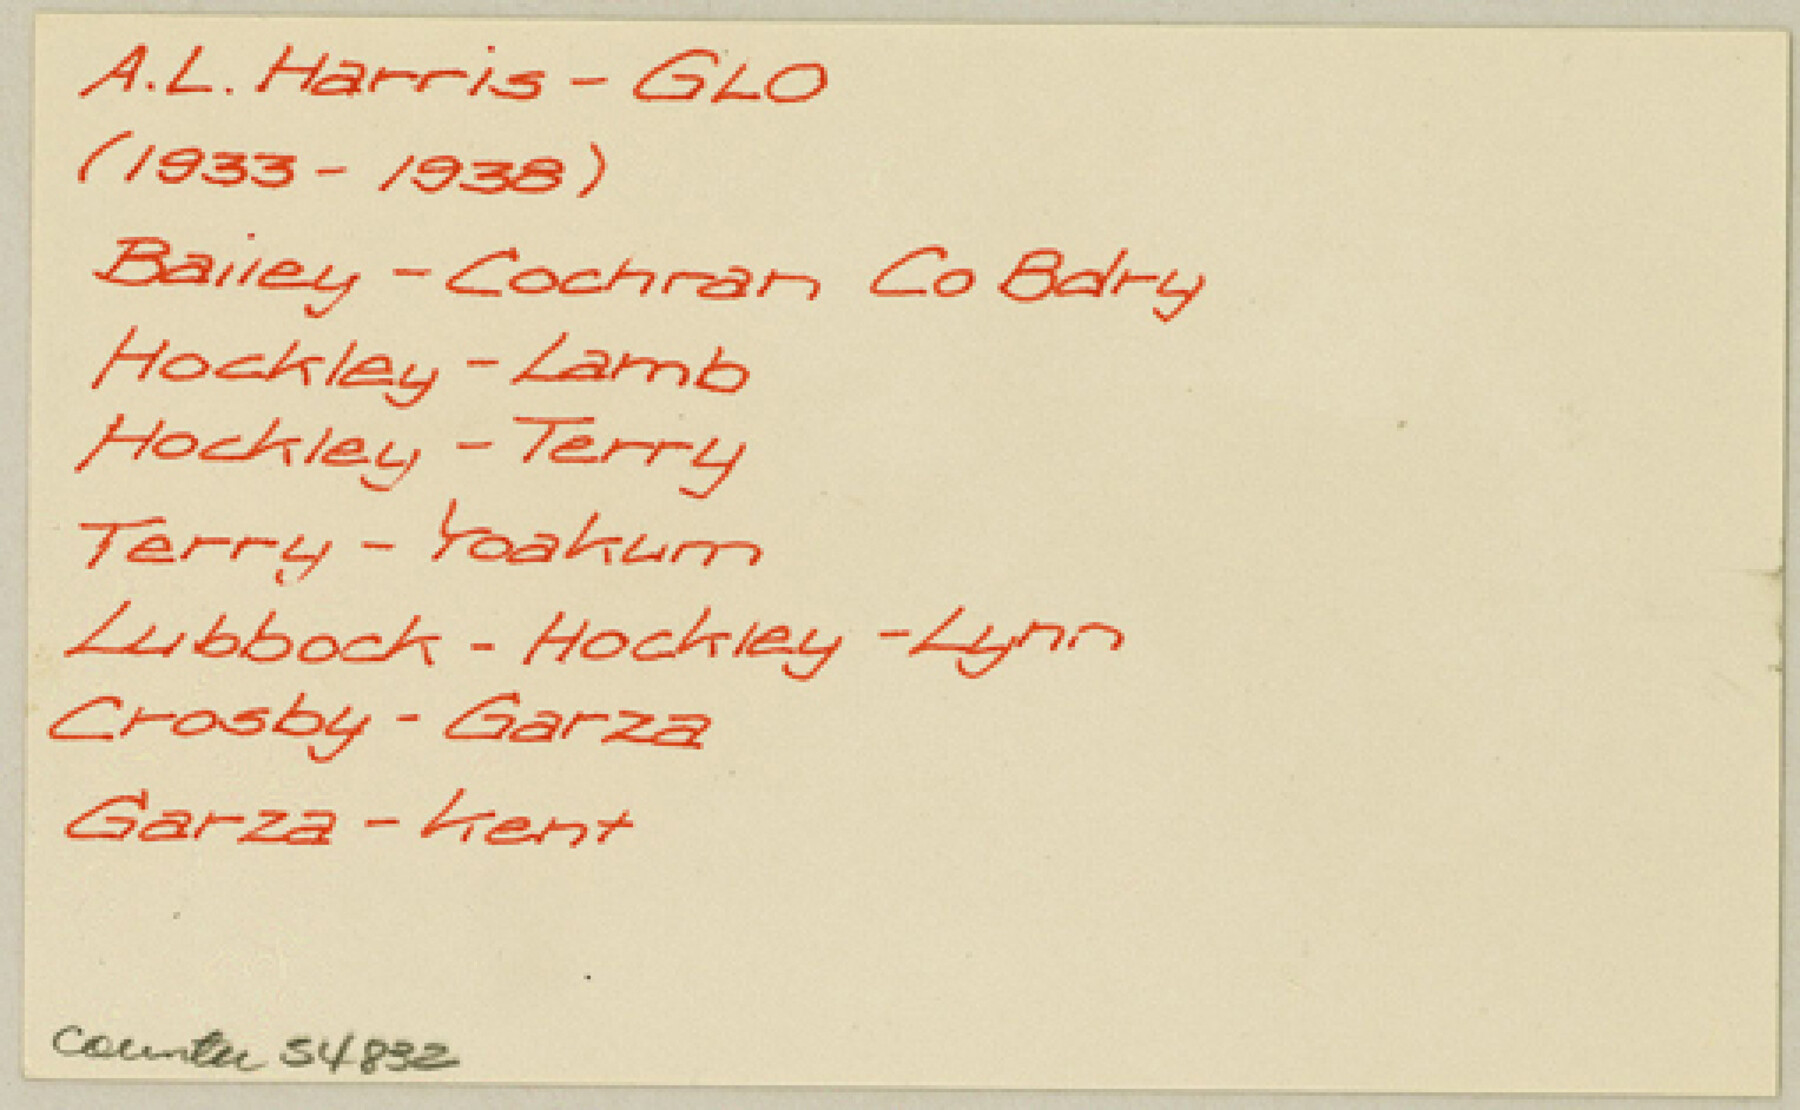 A.L. Harris - GLO
(1933 - 1938)
Bailey - Cochran Co Bdry
Hockley - Lamb
Hockley - Terry
Terry - Yoakum
Lubbock - Hockley - Lynn
Crosby - Garza
Garza - Kent
Counter 54832